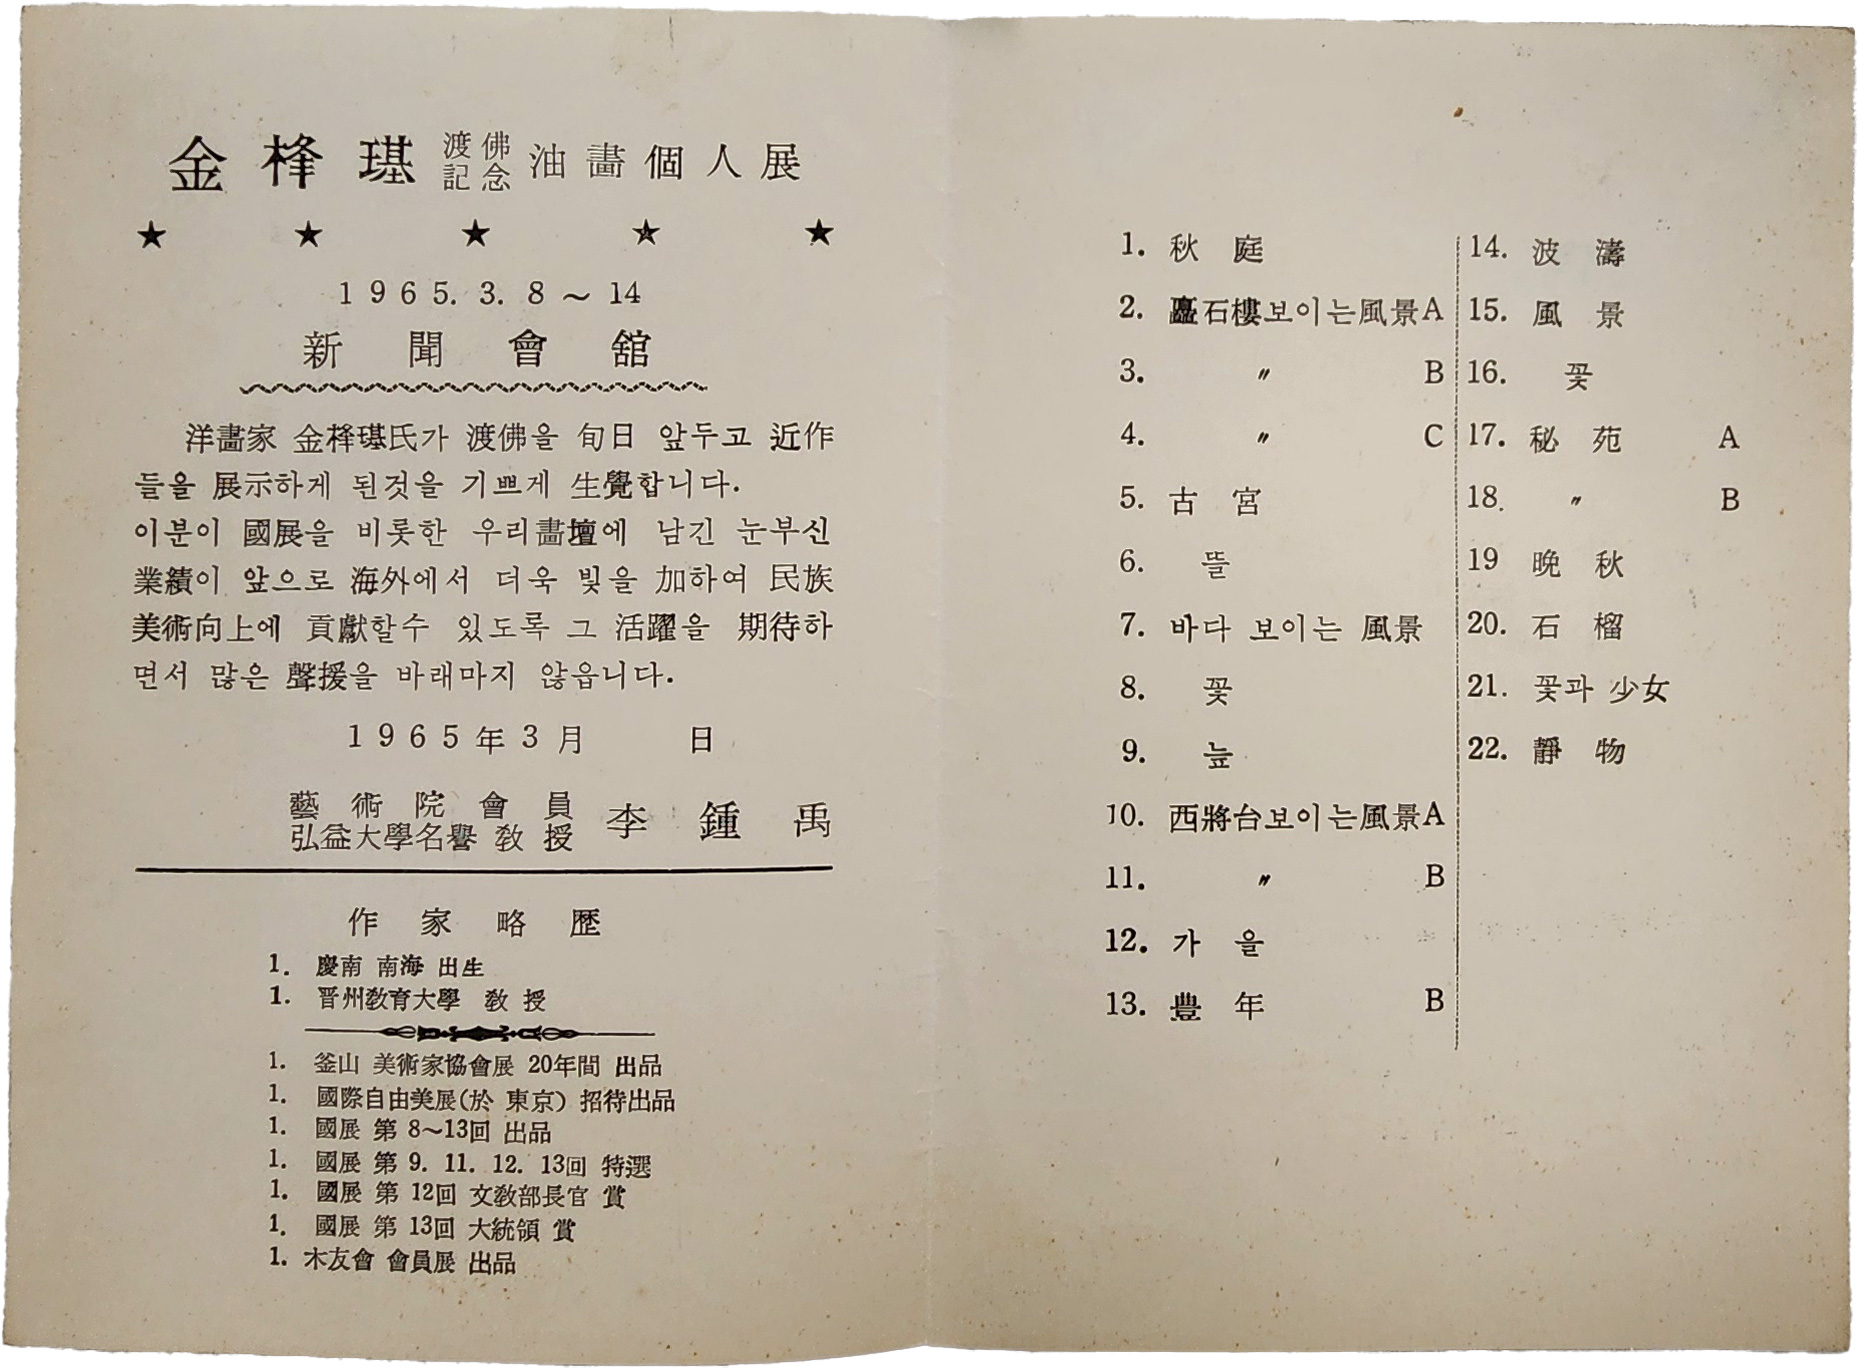 金㭐琪 渡佛記念 油畵個人展
★ ★ ★ ★ ★
1965. 3. 8 ~ 14
新聞會舘
洋畵家 金㭐琪氏가 渡佛을 旬日 앞두고 近作
들을 展示하게 된것을 기쁘게 生覺합니다.
이분이 國展을 비롯한 우리畵壇에 남긴 눈부신
業績이 앞으로 海外에서 더욱 빛을 加하여 民族
美術向上에 貢獻할수 있도록 그 活躍을 期待하
면서 많은 聲援을 바래마지 않읍니다.
1965年3月 日
藝術院會員
弘益大學名譽敎授 李鍾禹
作家略歷
1. 慶南 南海 出生
1. 晋州敎育大學 敎授
1. 釜山 美術家協會展 20年間 出品
1. 國際自由美展(於 東京) 招待出品
1. 國展 第 8~13回 出品
1. 國展 第 9. 11. 12. 13回 特選
1. 國展 第 12回 文敎部長官 賞
1. 國展 第 13回 大統領 賞
1. 木友會 會員展 出品
1. 秋庭
2. 矗石樓보이는風景A
3. 〃 B
4. 〃 C
5. 古宮
6. 뜰
7. 바다 보이는 風景
8. 꽃
9. 늪
10. 西將台보이는風景A
11. 〃 B
12. 가을
13. 豊年 B
14. 波濤
15. 風景
16. 꽃
17. 秘苑 A
18. 〃 B
19 晩秋
20. 石榴
21. 꽃과 少女
22. 靜物